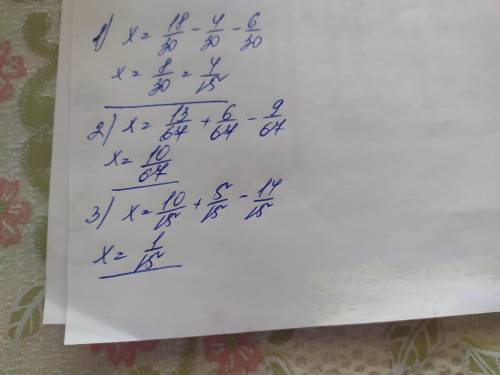 1) x = 18/30 - 4/30 - 6/30
x = 8/30 = 4/15
2) x = 13/67 + 6/67 - 9/67
x = 10/67
3) x = 10/15 + 5/15 - 14/15
x = 1/15